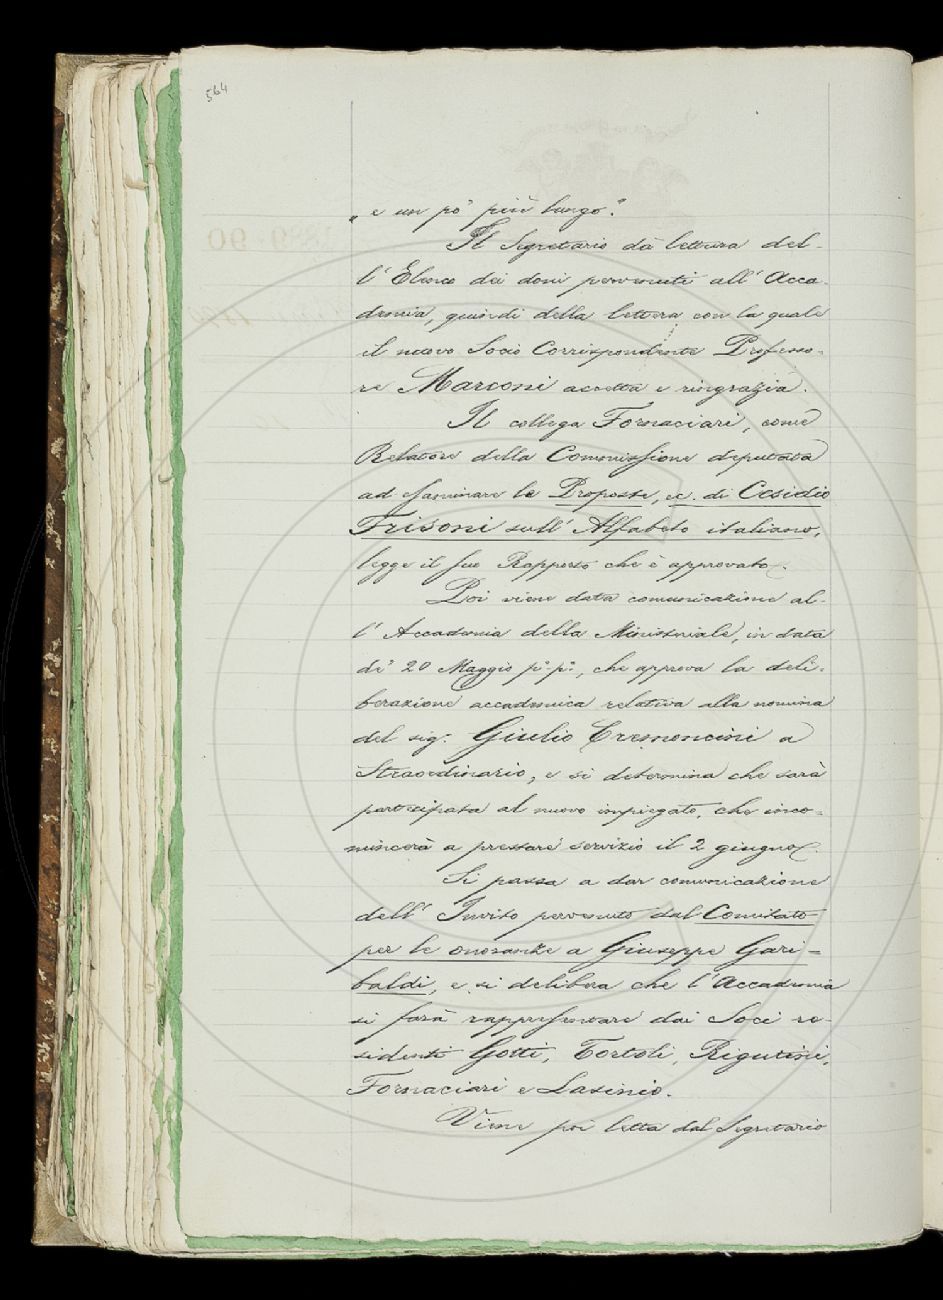 564
„ e un po' più lungo."
Il Segretario dà lettura del-
l'Elenco dei doni pervenuti all'Acca-
demia, quindi della lettera con la quale
il nuovo Socio Corrispondente Professo-
re Marconi accetta e ringrazia.
Il collega Fornaciari, come
Relatore della Commissione deputata
ad esaminare le Proposte, ec. di Cesidio
Frisoni sull'Alfabeto italiano,
legge il suo Rapporto che è approvato.
Poi viene data comunicazione al-
l'Accademia della Ministeriale, in data
de' 20 Maggio p.º p.º, che approva la deli-
berazione accademica relativa alla nomina
del sig. Giulio Cremoncini a
Straordinario, e si determina che sarà
partecipata al nuovo impiegato, che inco-
mincerà a prestare servizio il 2 giugno.
Si passa a dar comunicazione
dell'Invito pervenuto dal Comitato
per le onoranze a Giuseppe Gari-
baldi, e si delibera che l'Accademia
si farà rappresentare dai Soci re-
sidenti Gotti, Tortoli, Rigutini,
Fornaciari e Lasinio.
Viene poi letta dal Segretario